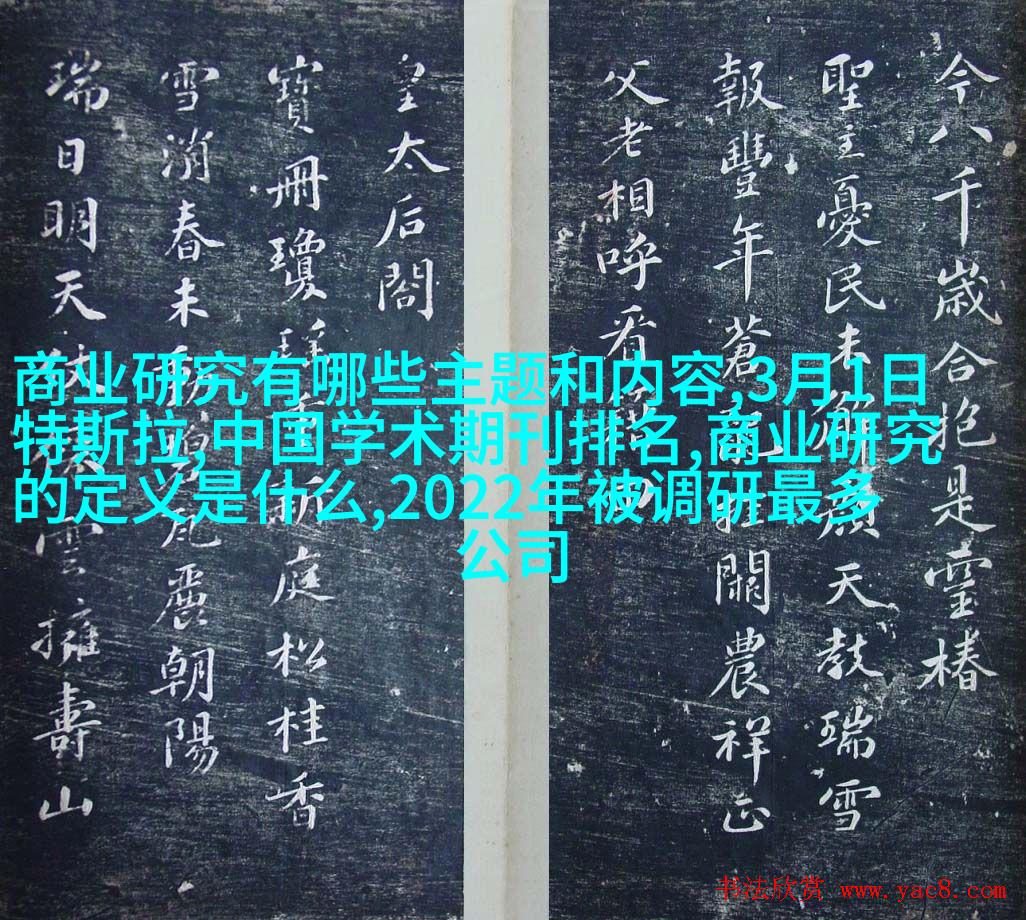 商业研究有哪些主题和内容,3月1日
特斯拉,中国学术期刊排名,商业研究
的定义是什么,2022年被调研最多
公司
今八千歲合抱是靈椿
聖主憂民未解顏天教瑞雪
報豐年蒼龍挂闕農祥正
父老相呼看
皇太后閤
寶冊瓊新庭松桂香
雪消春未瓦麗朝陽
瑞日明天雲擁壽山
书法欣赏 www.yac8.com